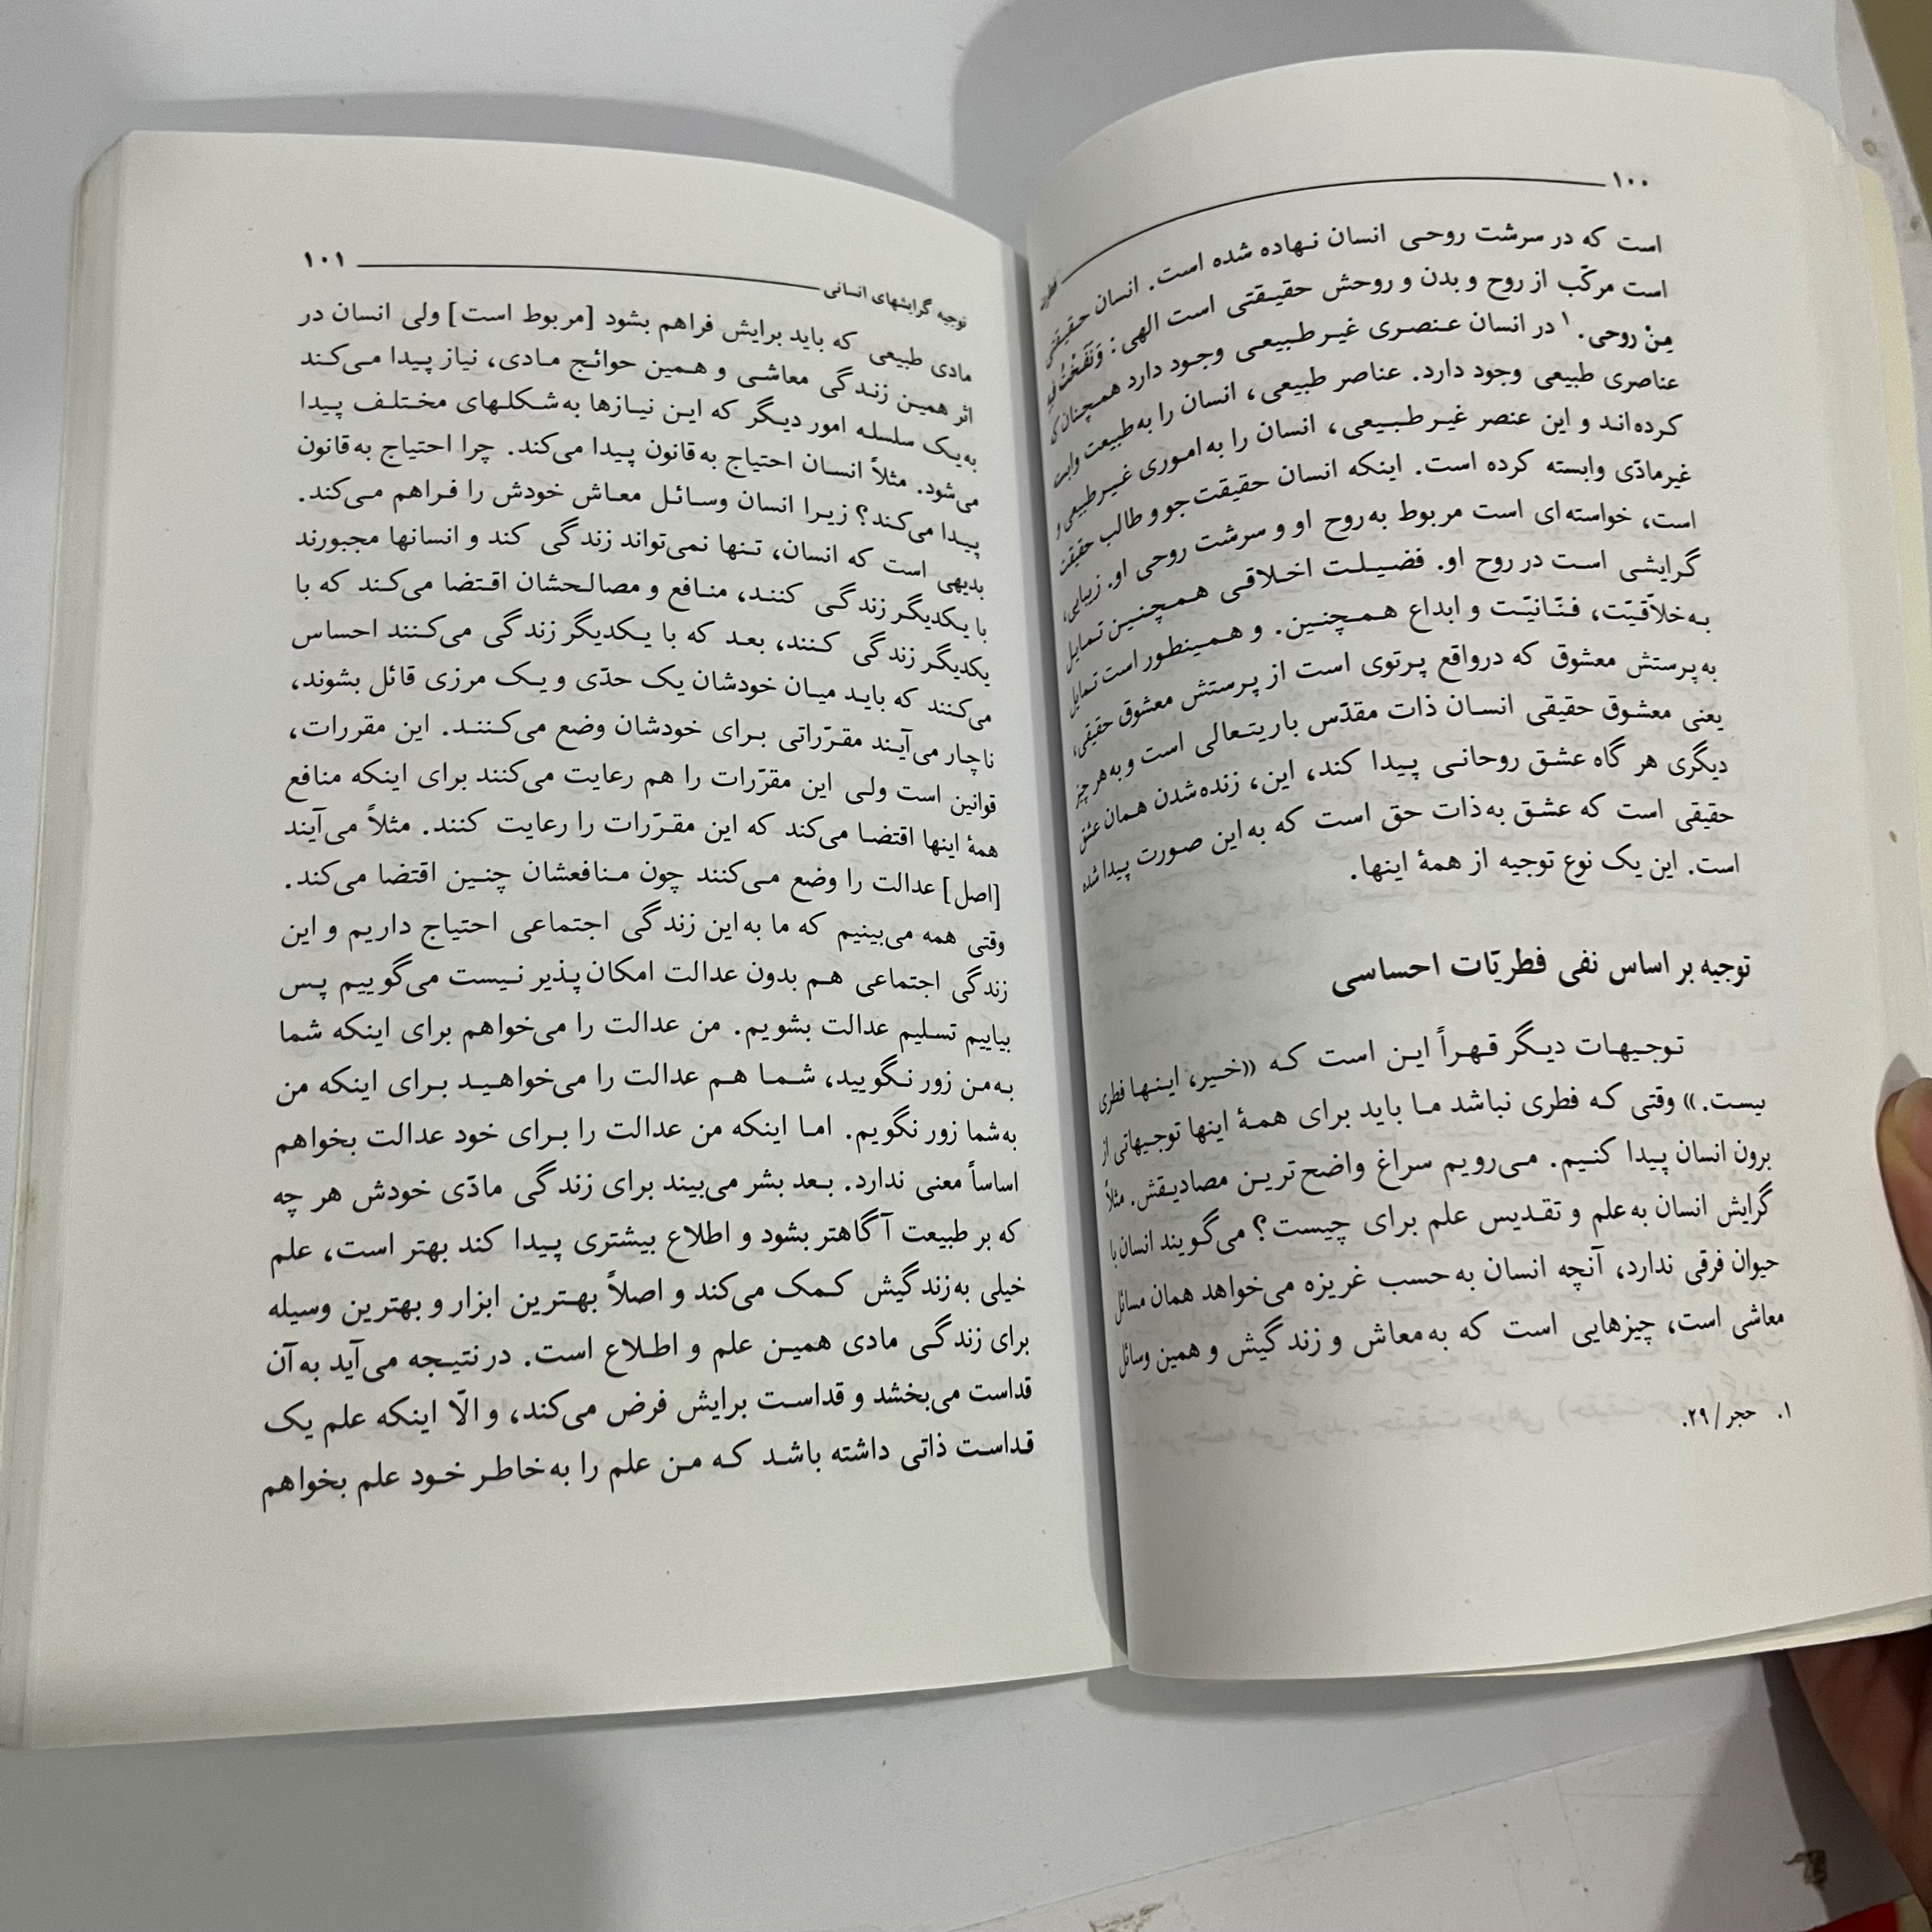 ۱۰۰
است که در سرشت روحی انسان نهاده شده است. انسان حقیقتی
است مرکّب از روح و بدن و روحش حقیقتی است الهی: وَنَفَخْتُ فیهِ
مِنْ روحی.۱ در انسان عنصری غیرطبیعی وجود دارد همچنان که
عناصری طبیعی وجود دارد. عناصر طبیعی، انسان را به طبیعت وابسته
کرده‌اند و این عنصر غیرطبیعی، انسان را به اموری غیرطبیعی و
غیرمادّی وابسته کرده است. اینکه انسان حقیقت‌جو و طالب حقیقت
است، خواسته‌ای است مربوط به روح او و سرشت روحی او. زیبایی،
گرایشی است در روح او. فضیلت اخلاقی همچنین تمایل
به خلاّقیّت، فنّانیّت و ابداع همچنین. و همینطور است تمایل
به پرستش معشوق که درواقع پرتوی است از پرستش معشوق حقیقی،
یعنی معشوق حقیقی انسان ذات مقدّس باریتعالی است و به هر چیز
دیگری هر گاه عشق روحانی پیدا کند، این، زنده شدن همان عشق
حقیقی است که عشق به ذات حق است که به این صورت پیدا شده
است. این یک نوع توجیه از همهٔ اینها.
توجیه بر اساس نفی فطریّات احساسی
توجیهات دیگر قهراً این است که «خیر، اینها فطری
نیست.» وقتی که فطری نباشد ما باید برای همهٔ اینها توجیهاتی از
برون انسان پیدا کنیم. می‌رویم سراغ واضح‌ترین مصادیقش. مثلاً
گرایش انسان به علم و تقدیس علم برای چیست؟ می‌گویند انسان با
حیوان فرقی ندارد، آنچه انسان به حسب غریزه می‌خواهد همان مسائل
معاشی است، چیزهایی است که به معاش و زندگیش و همین وسائل
۱. حجر / ۲۹.
توجیه گرایشهای انسانی ۱۰۱
مادی طبیعی که باید برایش فراهم بشود [مربوط است] ولی انسان در
اثر همین زندگی معاشی و همین حوائج مادی، نیاز پیدا می‌کند
به یک سلسله امور دیگر که این نیازها به شکلهای مختلف پیدا
می‌شود. مثلاً انسان احتیاج به قانون پیدا می‌کند. چرا احتیاج به قانون
پیدا می‌کند؟ زیرا انسان وسائل معاش خودش را فراهم می‌کند.
بدیهی است که انسان، تنها نمی‌تواند زندگی کند و انسانها مجبورند
با یکدیگر زندگی کنند، منافع و مصالحشان اقتضا می‌کند که با
یکدیگر زندگی کنند، بعد که با یکدیگر زندگی می‌کنند احساس
می‌کنند که باید میان خودشان یک حدّی و یک مرزی قائل بشوند،
ناچار می‌آیند مقرّراتی برای خودشان وضع می‌کنند. این مقررات،
قوانین است ولی این مقرّرات را هم رعایت می‌کنند برای اینکه منافع
همهٔ اینها اقتضا می‌کند که این مقرّرات را رعایت کنند. مثلاً می‌آیند
[اصل] عدالت را وضع می‌کنند چون منافعشان چنین اقتضا می‌کند.
وقتی همه می‌بینیم که ما به این زندگی اجتماعی احتیاج داریم و این
زندگی اجتماعی هم بدون عدالت امکان‌پذیر نیست می‌گوییم پس
بیاییم تسلیم عدالت بشویم. من عدالت را می‌خواهم برای اینکه شما
به من زور نگویید، شما هم عدالت را می‌خواهید برای اینکه من
به شما زور نگویم. اما اینکه من عدالت را برای خود عدالت بخواهم
اساساً معنی ندارد. بعد بشر می‌بیند برای زندگی مادّی خودش هر چه
که بر طبیعت آگاهتر بشود و اطلاع بیشتری پیدا کند بهتر است، علم
خیلی به زندگیش کمک می‌کند و اصلاً بهترین ابزار و بهترین وسیله
برای زندگی مادی همین علم و اطلاع است. درنتیجه می‌آید به آن
قداست می‌بخشد و قداست برایش فرض می‌کند، و الّا اینکه علم یک
قداست ذاتی داشته باشد که من علم را به خاطر خود علم بخواهم